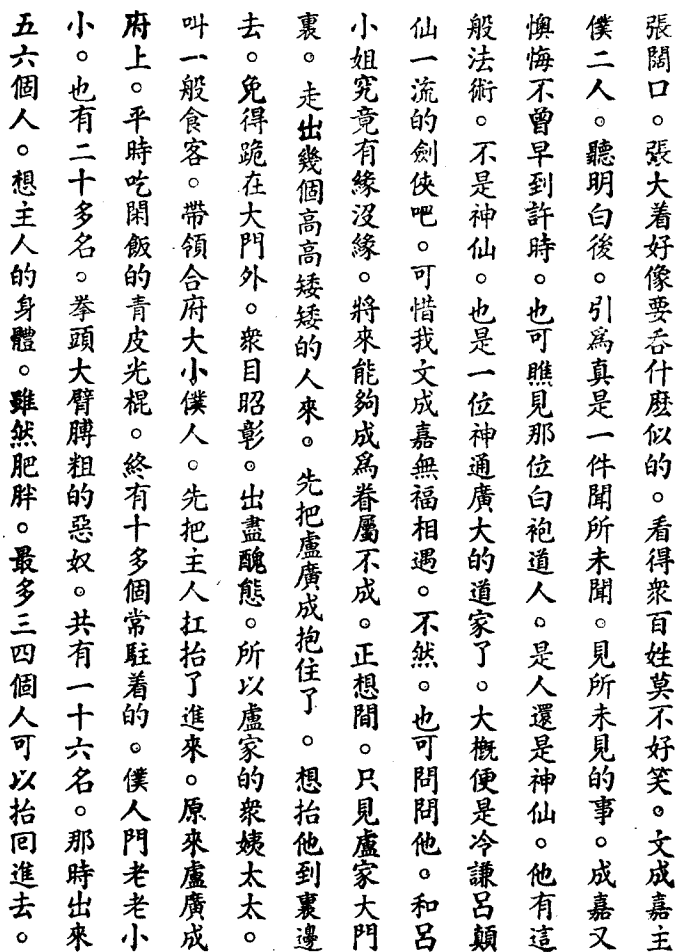 張闊口。張大着好像要呑什麽似的。看得衆百姓莫不好笑。文成嘉主
僕二人。聽明白後。引爲真是一件聞所未聞。見所未見的事。成嘉又
懊悔不曾早到許時。也可瞧見那位白袍道人。是人還是神仙。他有這
般法術。不是神仙。也是一位神通廣大的道家了。大概便是冷謙呂顛
仙一流的劍俠吧。可惜我文成嘉無福相遇。不然。也可問問他。和呂
小姐究竟有緣沒緣。將來能夠成爲眷屬不成。正想間。只見盧家大門
裏。走出幾個高高矮矮的人來。先把盧廣成抱住了。想抬他到裏邊
去。免得跪在大門外。衆目昭彰。出盡醜態。所以盧家的衆姨太太。
叫一般食客。帶領合府大小僕人。先把主人扛抬了進來。原來盧廣成
府上。平時吃閑飯的青皮光棍。終有十多個常駐着的。僕人門老老小
小。也有二十多名。拳頭大臂膊粗的惡奴。共有一十六名。那時出來
五六個人。想主人的身體。雖然肥胖。最多三四個人可以抬回進去。